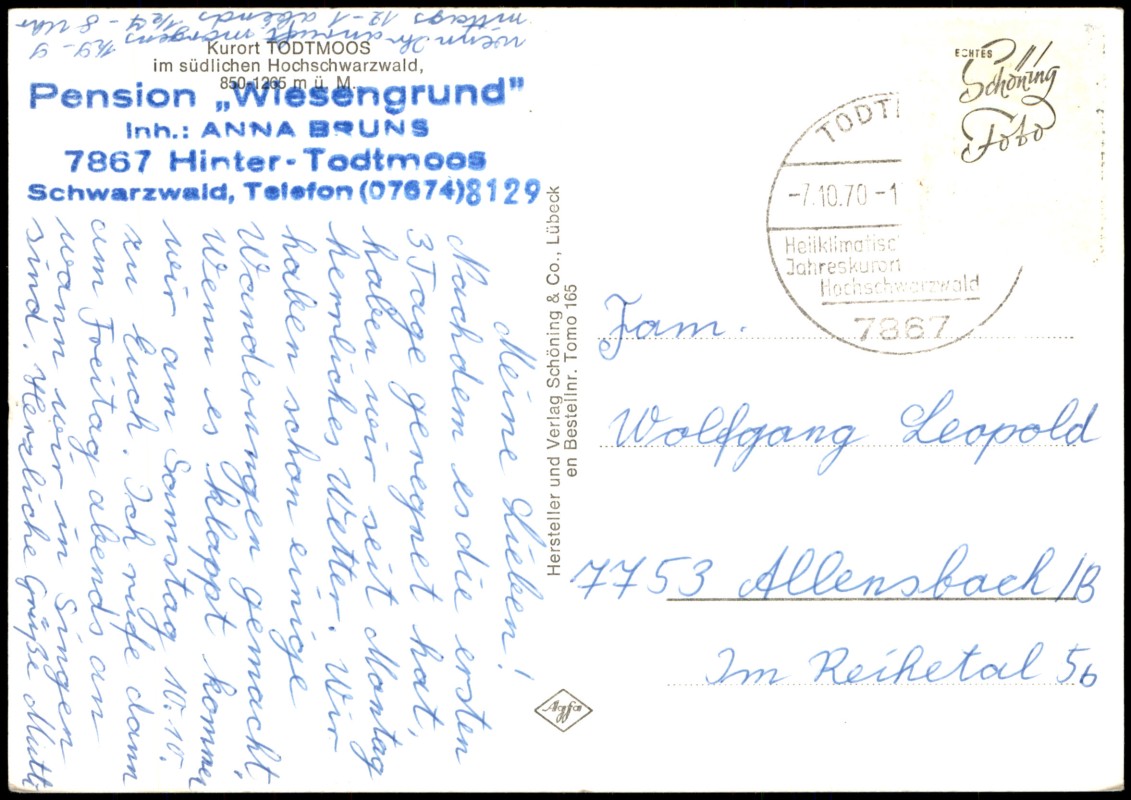 Kurort TODTMOOS
im südlichen Hochschwarzwald,
850-1265 m ü. M.
Pension „Wiesengrund"
Inh.: ANNA BRUNS
7867 Hinter-Todtmoos
Schwarzwald, Telefon (07674) 8129
Meine Lieben!
Nachdem es die ersten
3 Tage geregnet hat,
haben wir seit Montag
herrliches Wetter. Wir
haben schon einige
Wanderungen gemacht.
Wenn es klappt kommen
wir am Samstag 10.10.
zu Euch. Ich rufe dann
am Freitag abends an
wann wir in Singen
sind. Herzliche Grüße Mutti
wenn Ihr anruft, morgens 1/2 9 - 9
mittags 12-1 abends 1/2 7 - 8 Uhr
Hersteller und Verlag Schöning & Co., Lübeck
en Bestellnr. Tomo 165
Agfa
ECHTES
Schöning
Foto
TODT
-7.10.70-1
Heilklimatisc
Jahreskurort
Hochschwarzwald
7867
Fam.
Wolfgang Leopold
7753 Allensbach/B
Im Reihetal 5b